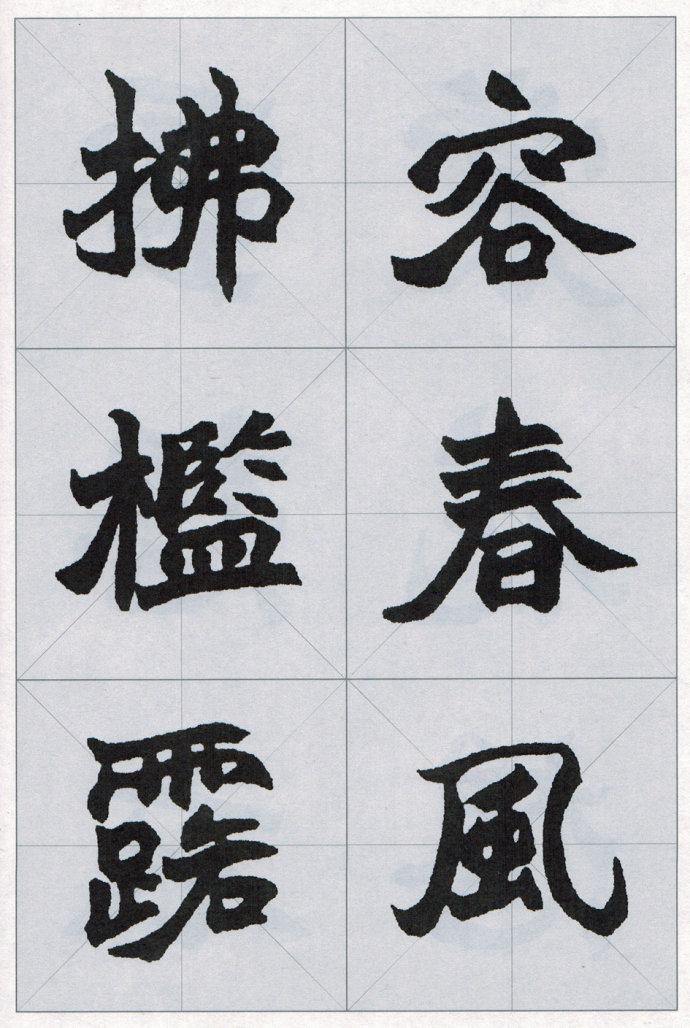 容春風
拂檻露